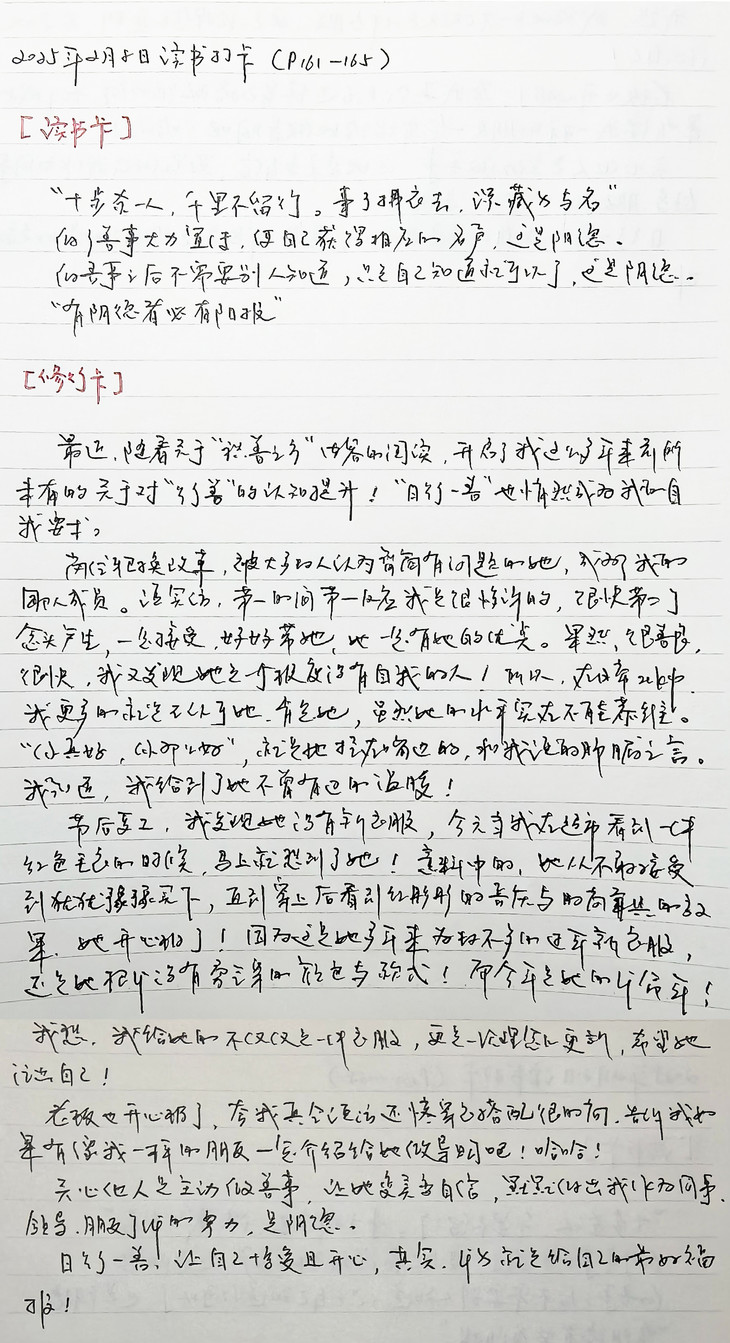 2025年2月8日读书打卡(P161-165)
[读书卡]
“十步杀一人,千里不留行。事了拂衣去,深藏功与名”
做了善事大力宣传,使自己获得相应的名声,这是阳德。
做善事之后不需要别人知道,只是自己知道就可以了,这是阴德。
“有阴德者必有阳报”
[修行卡]
最近,随着关于“积善之方”内容的阅读,开启了我这么多年来前所
未有的关于对“行善”的认知提升!“日行一善”也悄然成为我的自
我要求。
岗位轮换改革,被大多的人认为有问题的她,成为我的
团队成员。说实话,第一时间第一反应我是很抗拒的,很快第二个
念头产生,一定接受,好好带她,她一定有她的优点。果然,很善良,
很快,我又发现她是一个极度没有自我的人!所以,在这第二年中,
我更多的就是不认可她、肯定她,虽然她的水平实在不能恭维。
“你真好,你那么好”,就是她挂在嘴边的,和我说的肺腑之言。
我知道,我给到了她不曾有过的温暖!
节后复工,我发现她没有新衣服,今天当我在超市看到一件
红色毛衣的时候,马上就想到了她!意料中的,她从不敢接受
到犹犹豫豫买下,直到穿上后看到红彤彤的喜庆与的高兴的效
果,她开心极了!因为这是她多年来为数不多的过年新衣服,
还是她根本没有穿过的颜色与款式!而今年是她的本命年!
我想,我给她的不仅仅是一件衣服,更是一次理念的更新,希望她
活出自己!
老板也开心极了,夸我真会说话还懂穿衣搭配很时尚,告诉我如
果有像我一样的朋友一定介绍给她做导购吧!哈哈!
关心他人是主动做善事,让她变美变自信,默默付出我作为同事、
领导、朋友身份的努力,是阴德。
日行一善,让自己接受且开心,其实,行为就是给自己的最好福
报!